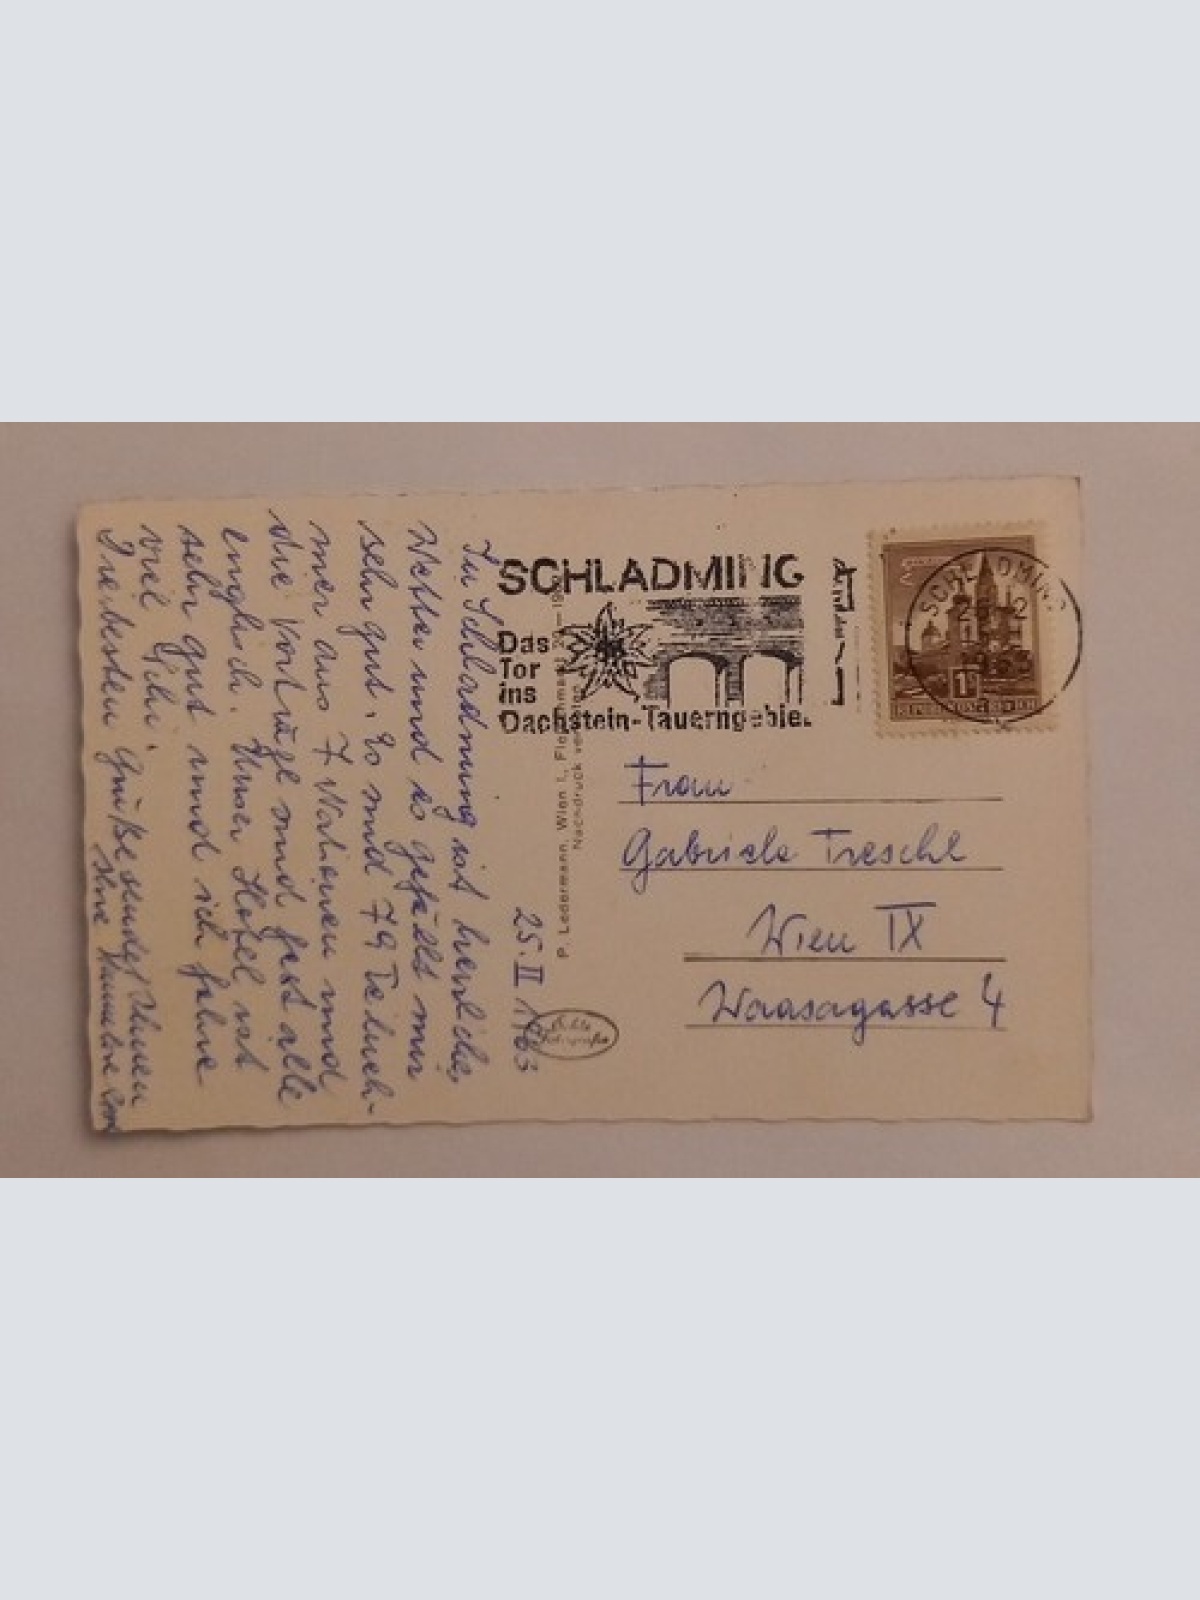 SCHLADMING
Das
Tor
ins
Dachstein-Tauerngebiet
SCHLADMING
REPUBLIK ÖSTERREICH
P. Ledermann, Wien I.,
Nachdruck
Frau
Gabriele Treschl
Wien IX
Wasagasse 4
25. II 1963
In Schladming ist herrliches
Wetter und es gefällt mir
sehr gut. Es sind 79 Teilneh-
mer aus 7 Nationen und
die Vorträge sind fast alle
englisch. Unser Hotel ist
sehr gut und ich fahre
viel Schi.
Die besten Grüße sendet Ihnen
Ihre